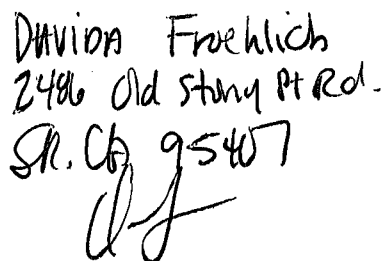 DAVIDA Froehlich
2486 Old Stony Pt Rd.
SR. CA 95407